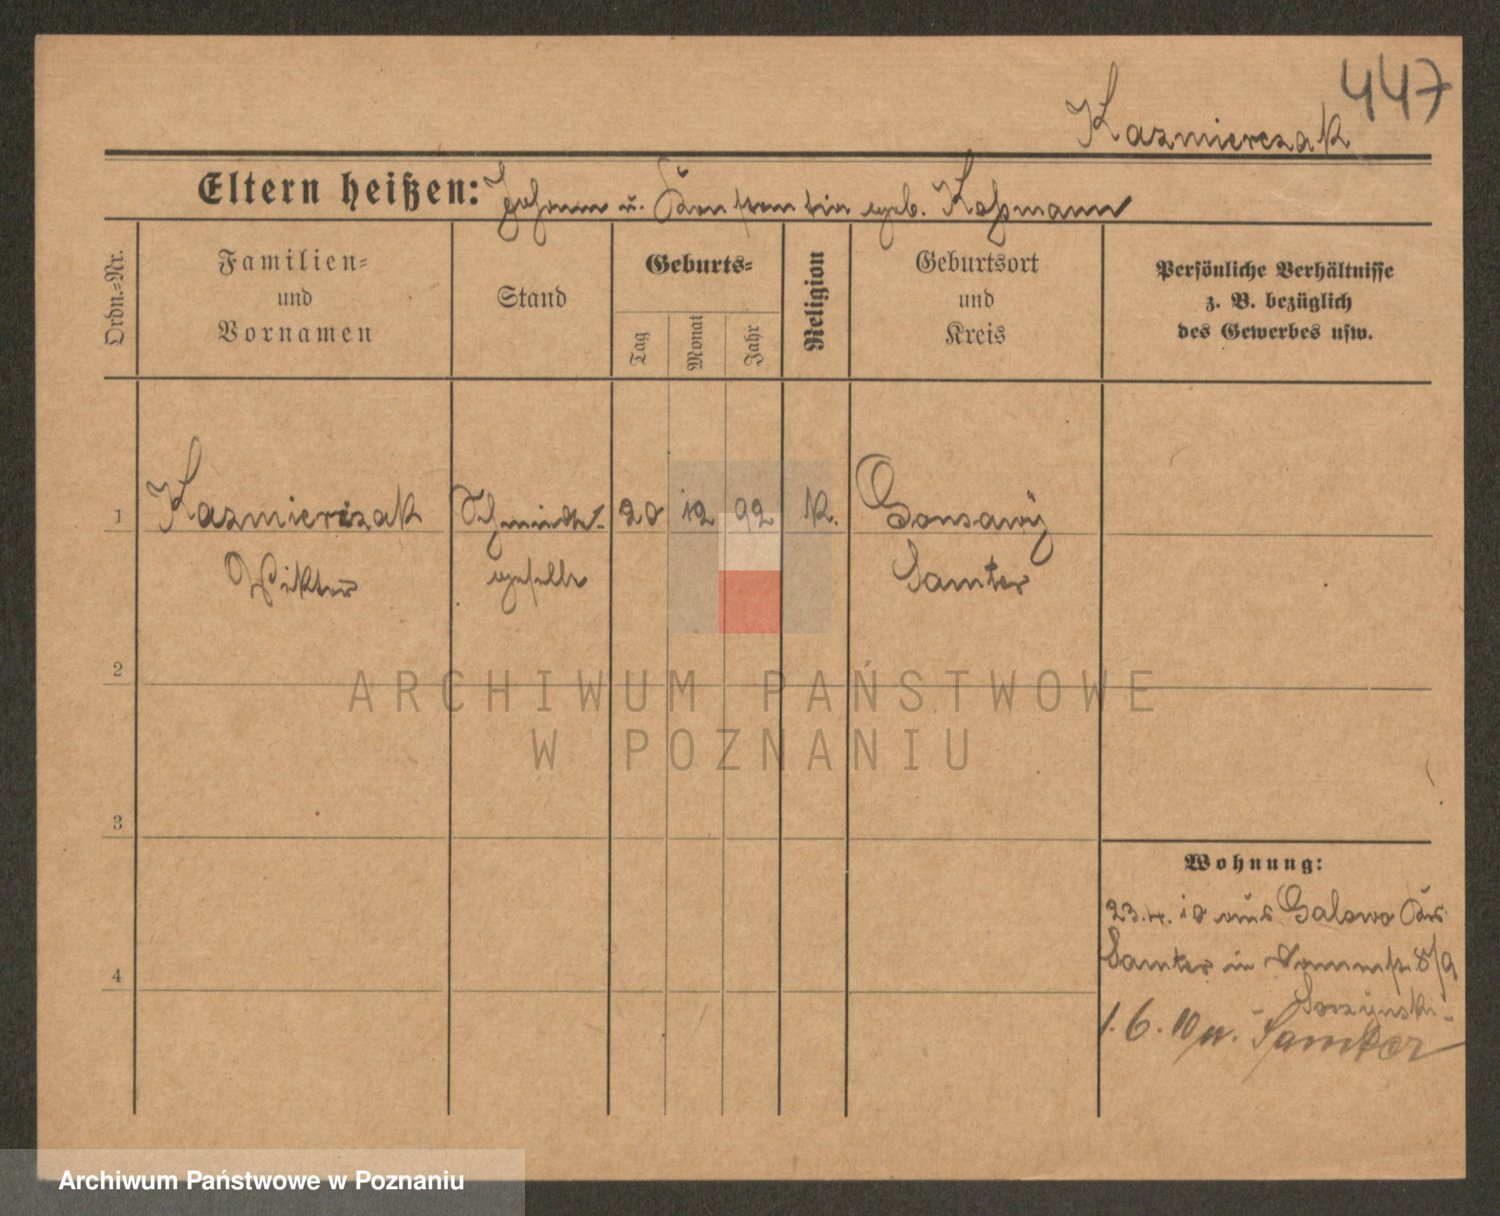 447
Kazmierczak
Eltern heißen: Johann u. Konstantia geb. Koßmann
Ordn.-Nr.
Familien-
und
Vornamen
Stand
Geburts-
Tag
Monat
Jahr
Religion
Geburtsort
und
Kreis
Persönliche Verhältnisse
z. B. bezüglich
des Gewerbes usw.
1 Kazmierczak Schmiede- 20 12 92 K.
Wiktor geselle Samter
2
ARCHIWUM PAŃSTWOWE
W POZNANIU
3
4
Wohnung:
23.4. 10 aus Galowo Krs
Samter in 8/9
1.6.10 n. Samter
Archiwum Państwowe w Poznaniu